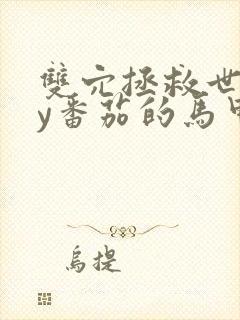 雙穴拯救世
y番茄的馬甲
烏提